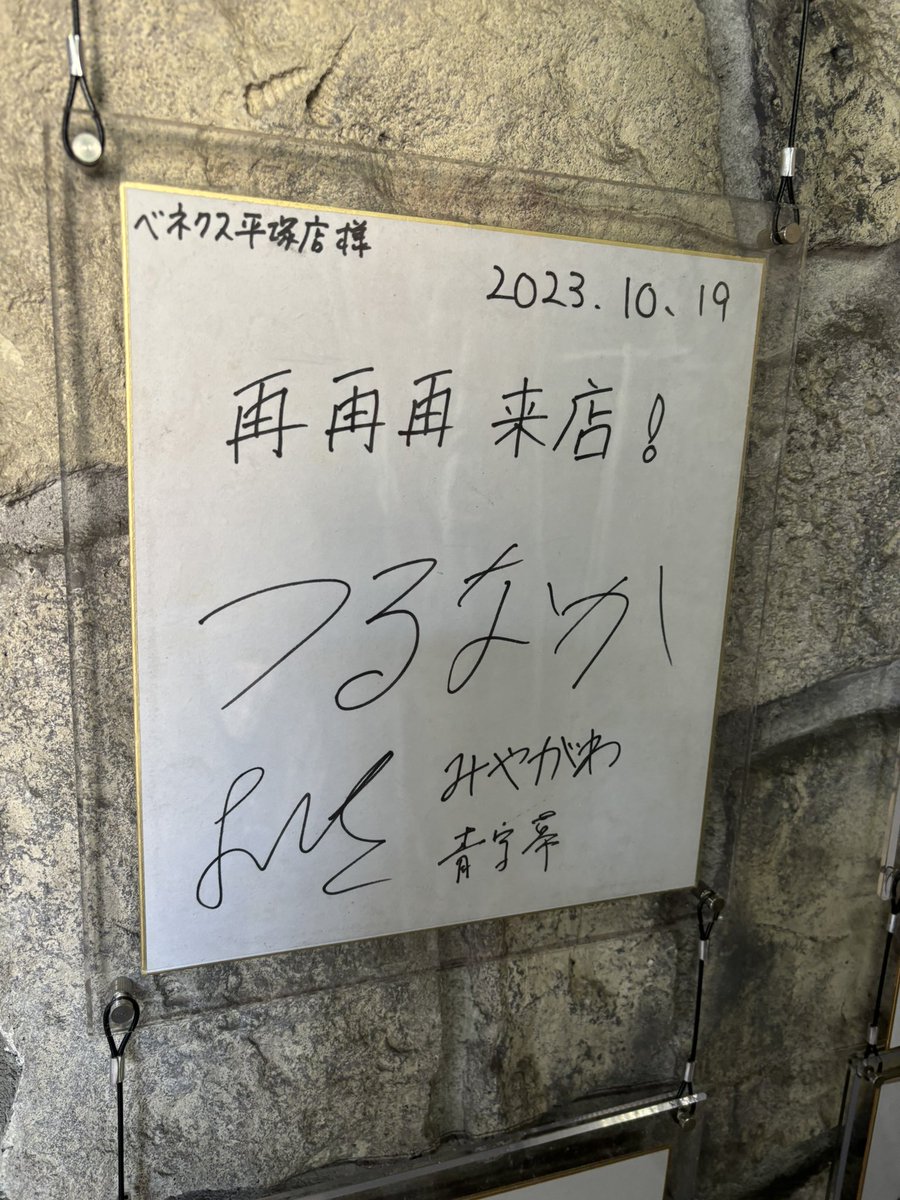 ベネクス平塚店様
2023.10.19
再再再来店!
つるなか
みやがわ